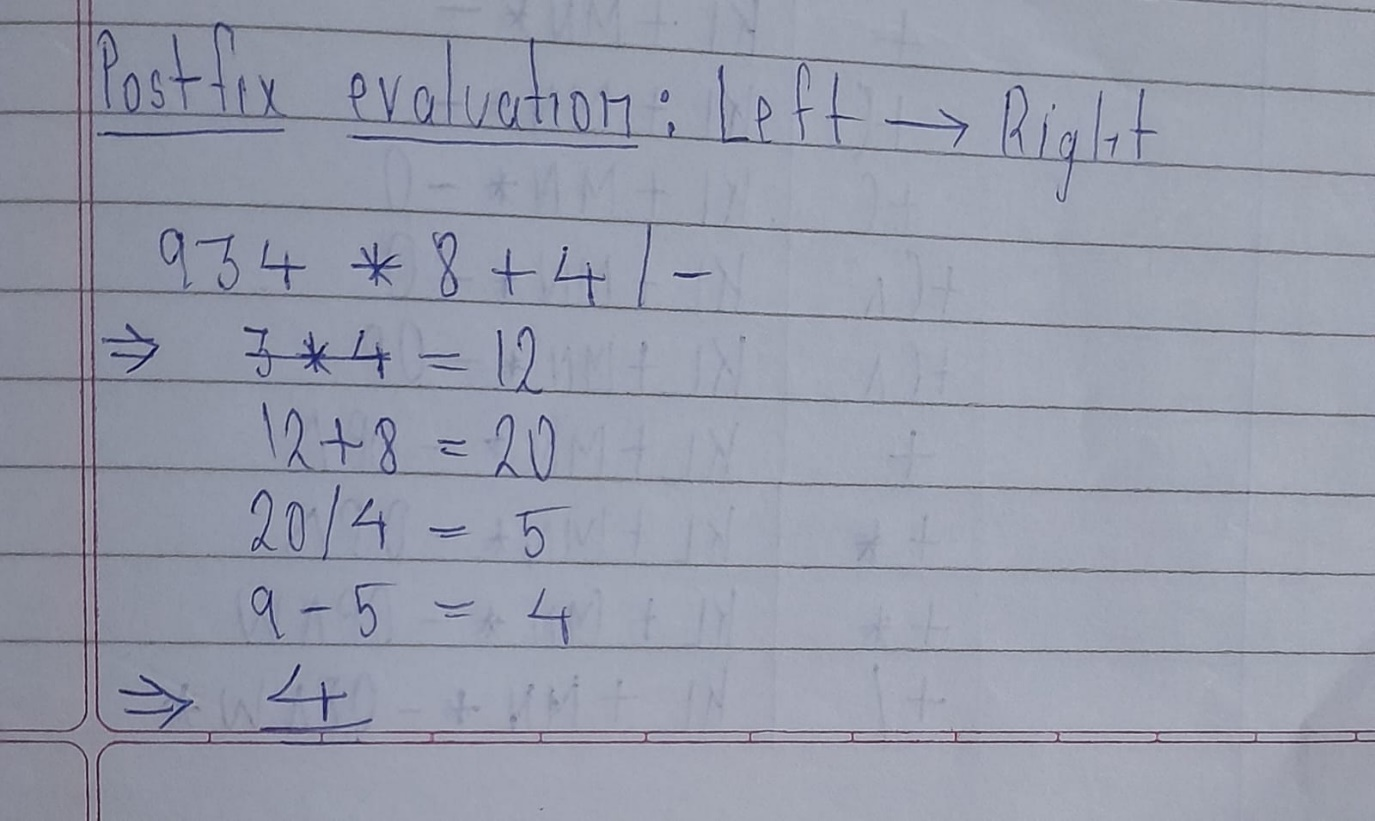 Postfix evaluation: Left → Right
934 * 8 + 4 / -
⇒ 3 * 4 = 12
12 + 8 = 20
20 / 4 = 5
9 - 5 = 4
⇒ 4